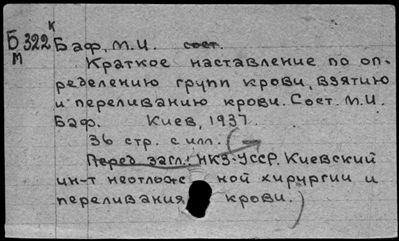 К
Б 322 Баф, М.И. сост.
М
Краткое наставление по оп-
ределению групп крови, взятию
и переливанию крови. Сост. М.И.
Баф. Киев, 1937.
36 стр. с илл. (→
Перед загл.: НКЗ-УССР. Киевский
ин-т неотлож ной хирургии и
переливания крови.)